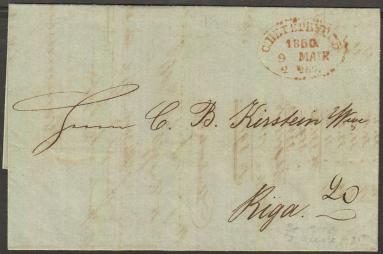 С.ПЕТЕРБУРГЪ
1850.
9 МАІЯ
2
Herrn C. B. Kirstein Wwe
Riga.